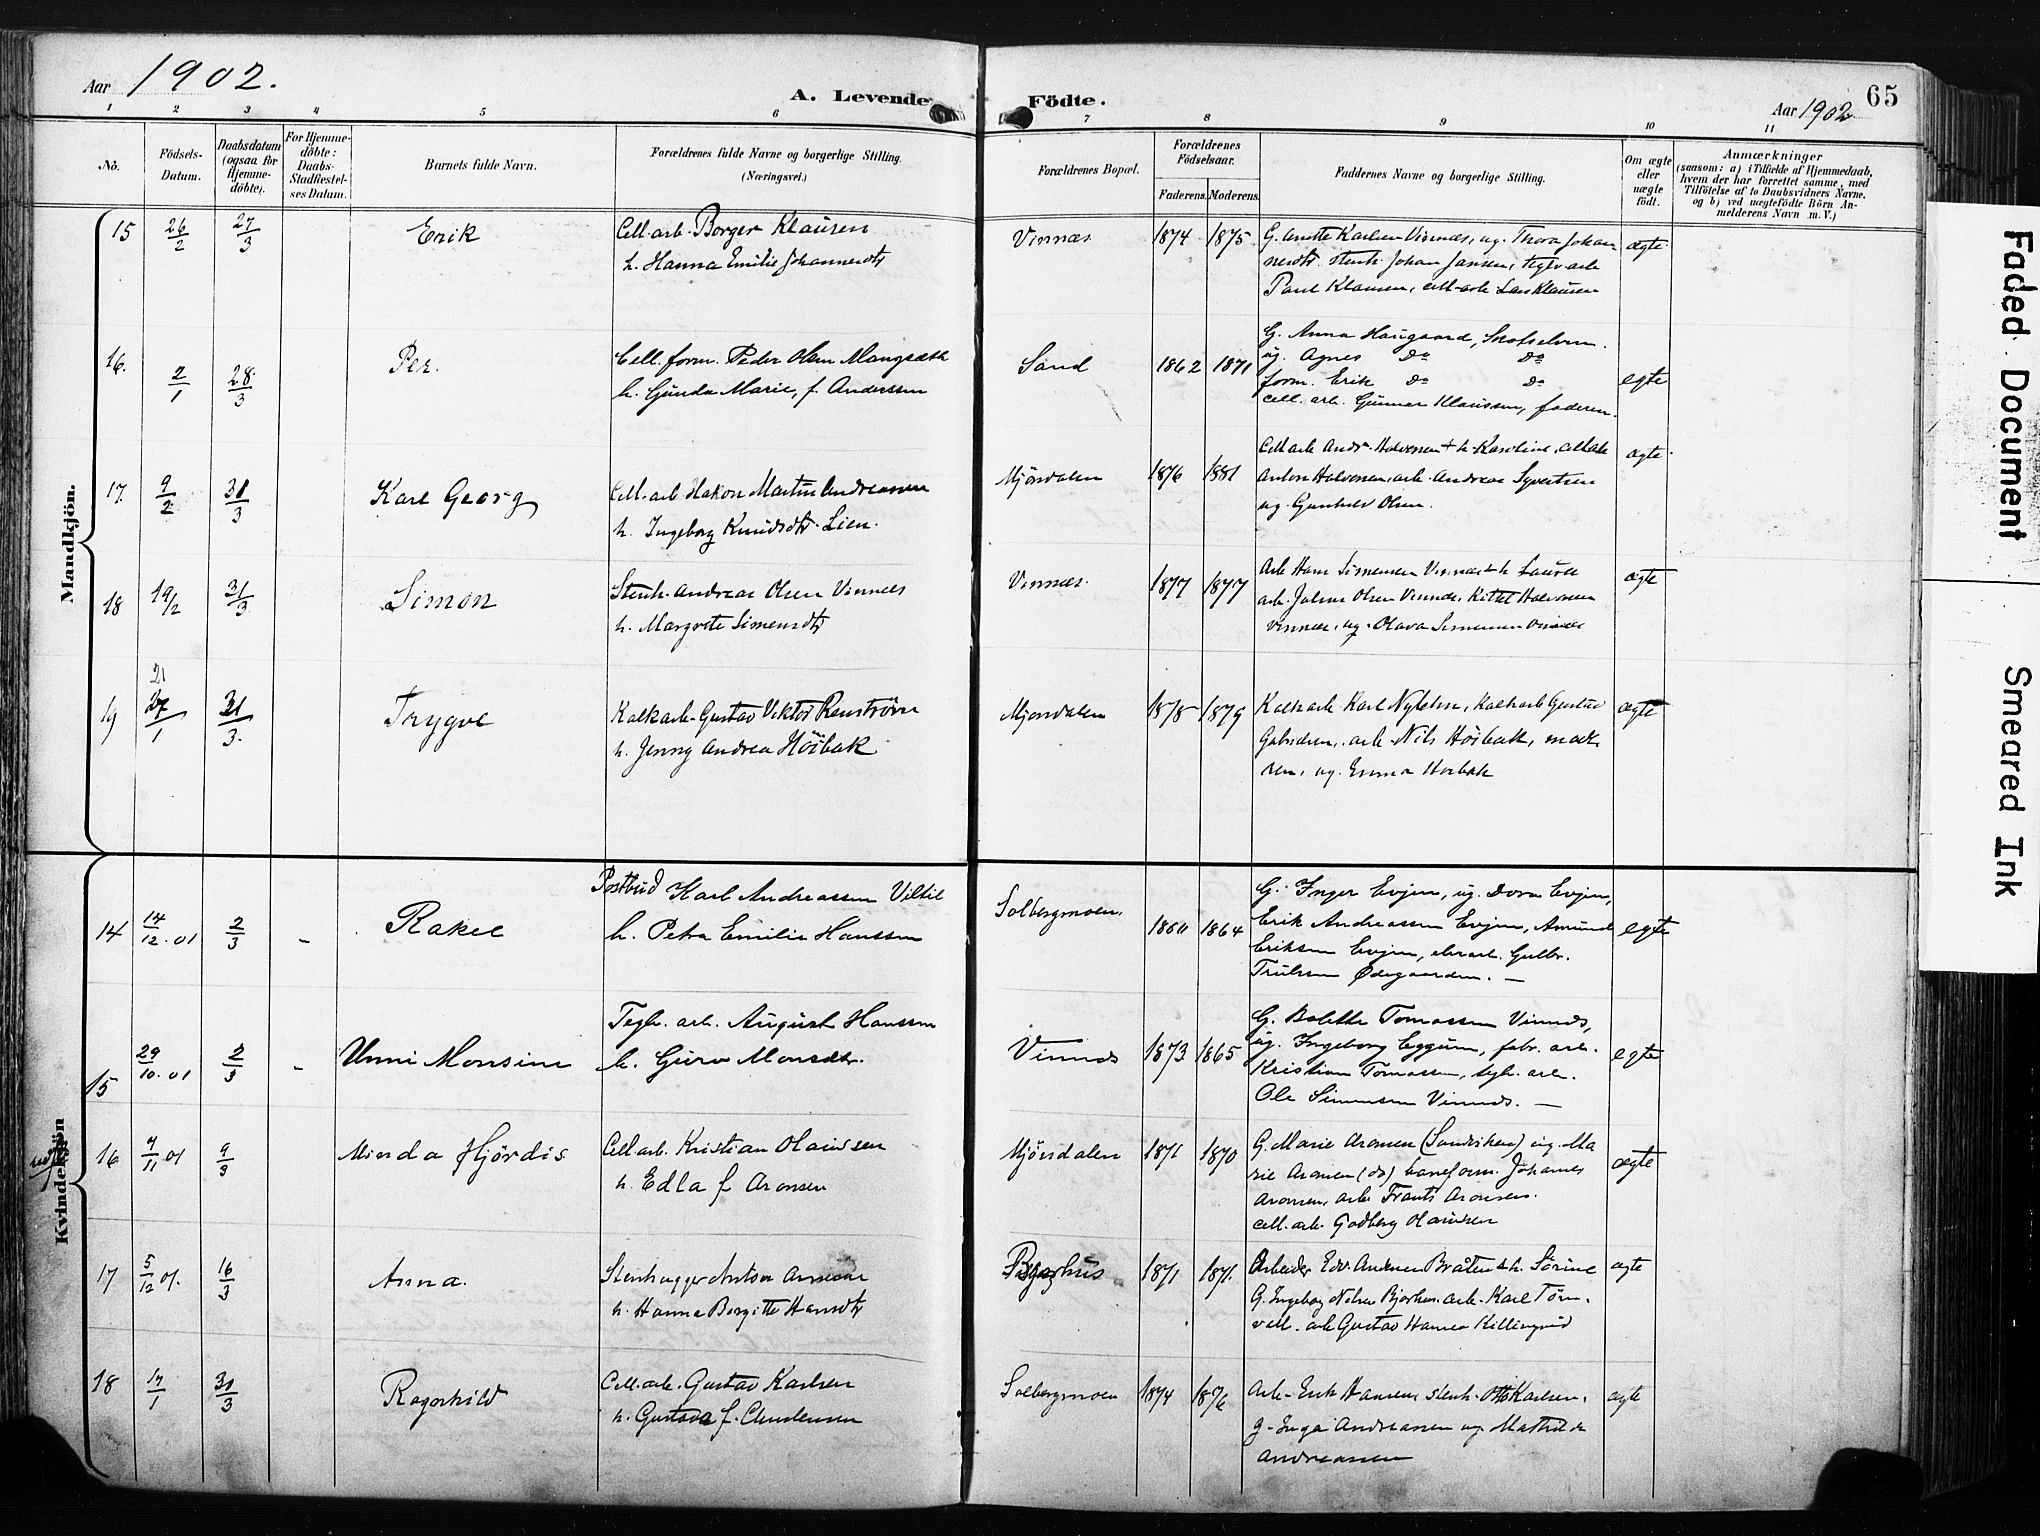 Aar 1902.
A. Levende Födte.
65
Aar 1902
1 2 3 4 5 6 7 8 9 10 11
No.
Födsels-Datum.
Daabsdatum (ogsaa for Hjemme-döbte).
For Hjemme-döbte: Daabs-Stadfæstel-ses Datum.
Barnets fulde Navn.
Forældrenes fulde Navne og borgerlige Stilling. (Næringsvei.)
Forældrenes Bopæl.
Forældrenes Födselsaar.
Faderens. Moderens.
Faddernes Navne og borgerlige Stilling.
Om ægte eller uægte födt.
Anmærkninger
(saasom: a) i Tilfælde af Hjemmedaab,
hvem der har forrettet samme, med
Tilföielse af to Daabsvidners Navne.
og b) ved uægtefödte Börn An-
melderens Navn m. V.)
Mandkjön.
15 26/2 27/3 Erik Cell. arb. Borger Klausen Vinnæs 1874 1875 G. Anette Karlsen Vinnæs, ug. Thora Johan ægte
h. Hanna Emilie Johannesdtr
nesdtr. stenh. Johan Jansen, teglv arb
Paul Klausen, cell-arb Lars Klausen
16. 2/1 28/3 Per. Cell. form. Peder Olsen Mangsæth Sand 1862 1871 G. Anna Haugaard, Skotselven egte
h. Gunda Marie, f. Anderssen
ug. Agnes Do Do
form. Erik Do Do
cell. arb. Gunnar Klaussen, faderen.
17. 9/2 31/3 Karl Georg Cell. arb Hakon Martin Andreassen Mjøndalen 1876 1881 Cell arb Andr. Halvorsen + h. Karoline, cell arb ægte
h. Ingeborg Knudsdtr. Lien.
Anton Halvorsen, arb. Andreas Syvertsen
ug. Gunhild Olsen.
18 19/2 31/3 Simon Stenh. Andreas Olsen Vinnæs Vinnæs. 1877 1877 Arb Hans Simensen Vinnæs + h Laura ægte
h. Margrete Simensdtr
arb. Johan Olsen Vinnæs, Kittel Halvorsen
Vinnæs, ug. Olava Simensen Vinnæs
19 21 27/1 31/3. Trygve Kalkarb. Gustav Viktor Renström Mjøndalen 1878 1879 Kalkarb Karl Nylehn, Kalkarb Gustav ægte
h. Jenny Andrea Höibak
Gabrielsen, arb. Nils Høibak, mod
ren, ug. Emma Høibak
Kvindekjön
14 14/12.01 2/3 - Rakel Postbud Karl Andreassen Viltil Solbergmoen. 1860 1864 G. Inger Evjen, ug. Dora Evjen, egte
h. Petra Emilie Hanssen
Erik Andreassen Evjen, Amund
Eriksen Evjen, elvearb. Gulbr.
Trulssen Ødegaarden. —
15 29/10.01 2/3 - Unni Monsine Teglv. arb. August Hanssen Vinnæs 1873 1865 G. Bolette Tomassen Vinnæs, egte
h. Guro Monsdtr.
ug. Ingeborg Eggum, fabr. arb.
Kristian Tomassen, teglv. arb.
Ole Simensen Vinnæs. —
16 7/11 01 9/3 Minda Hjørdis Cell arb. Kristian Olaussen Mjöndalen 1871 1870 G. Marie Aronsen (Sandviken) ug. Ma ægte
h. Edla f Aronsen
rie Aronsen (do) baneform. Johannes
Aronsen, arb. Frants Aronsen.
cell. arb. Godberg Olaussen
17 5/12 01. 16/3 Anna. Stenhugger Anton Arnesen 1871 1871. Arbeider Edv. Andersen Bråten + h. Sörine ægte
h. Hanna Birgitte Hansdtr
G. Ingeborg Nilsen Bjørhus. arb. Karl Törn-
vell. arb Gustav Hansen Killingrud
18 17/1 31/3 Ragnhild Cell. arb. Gustav Karlsen Solbergmoen 1874 1876 Arb. Erik Hansen, stenh. Otto Karlsen. ægte
h. Gustava f. Christensen
g. Inga Andreassen ug Mathilde
Andreassen
Faded Document
Smeared Ink